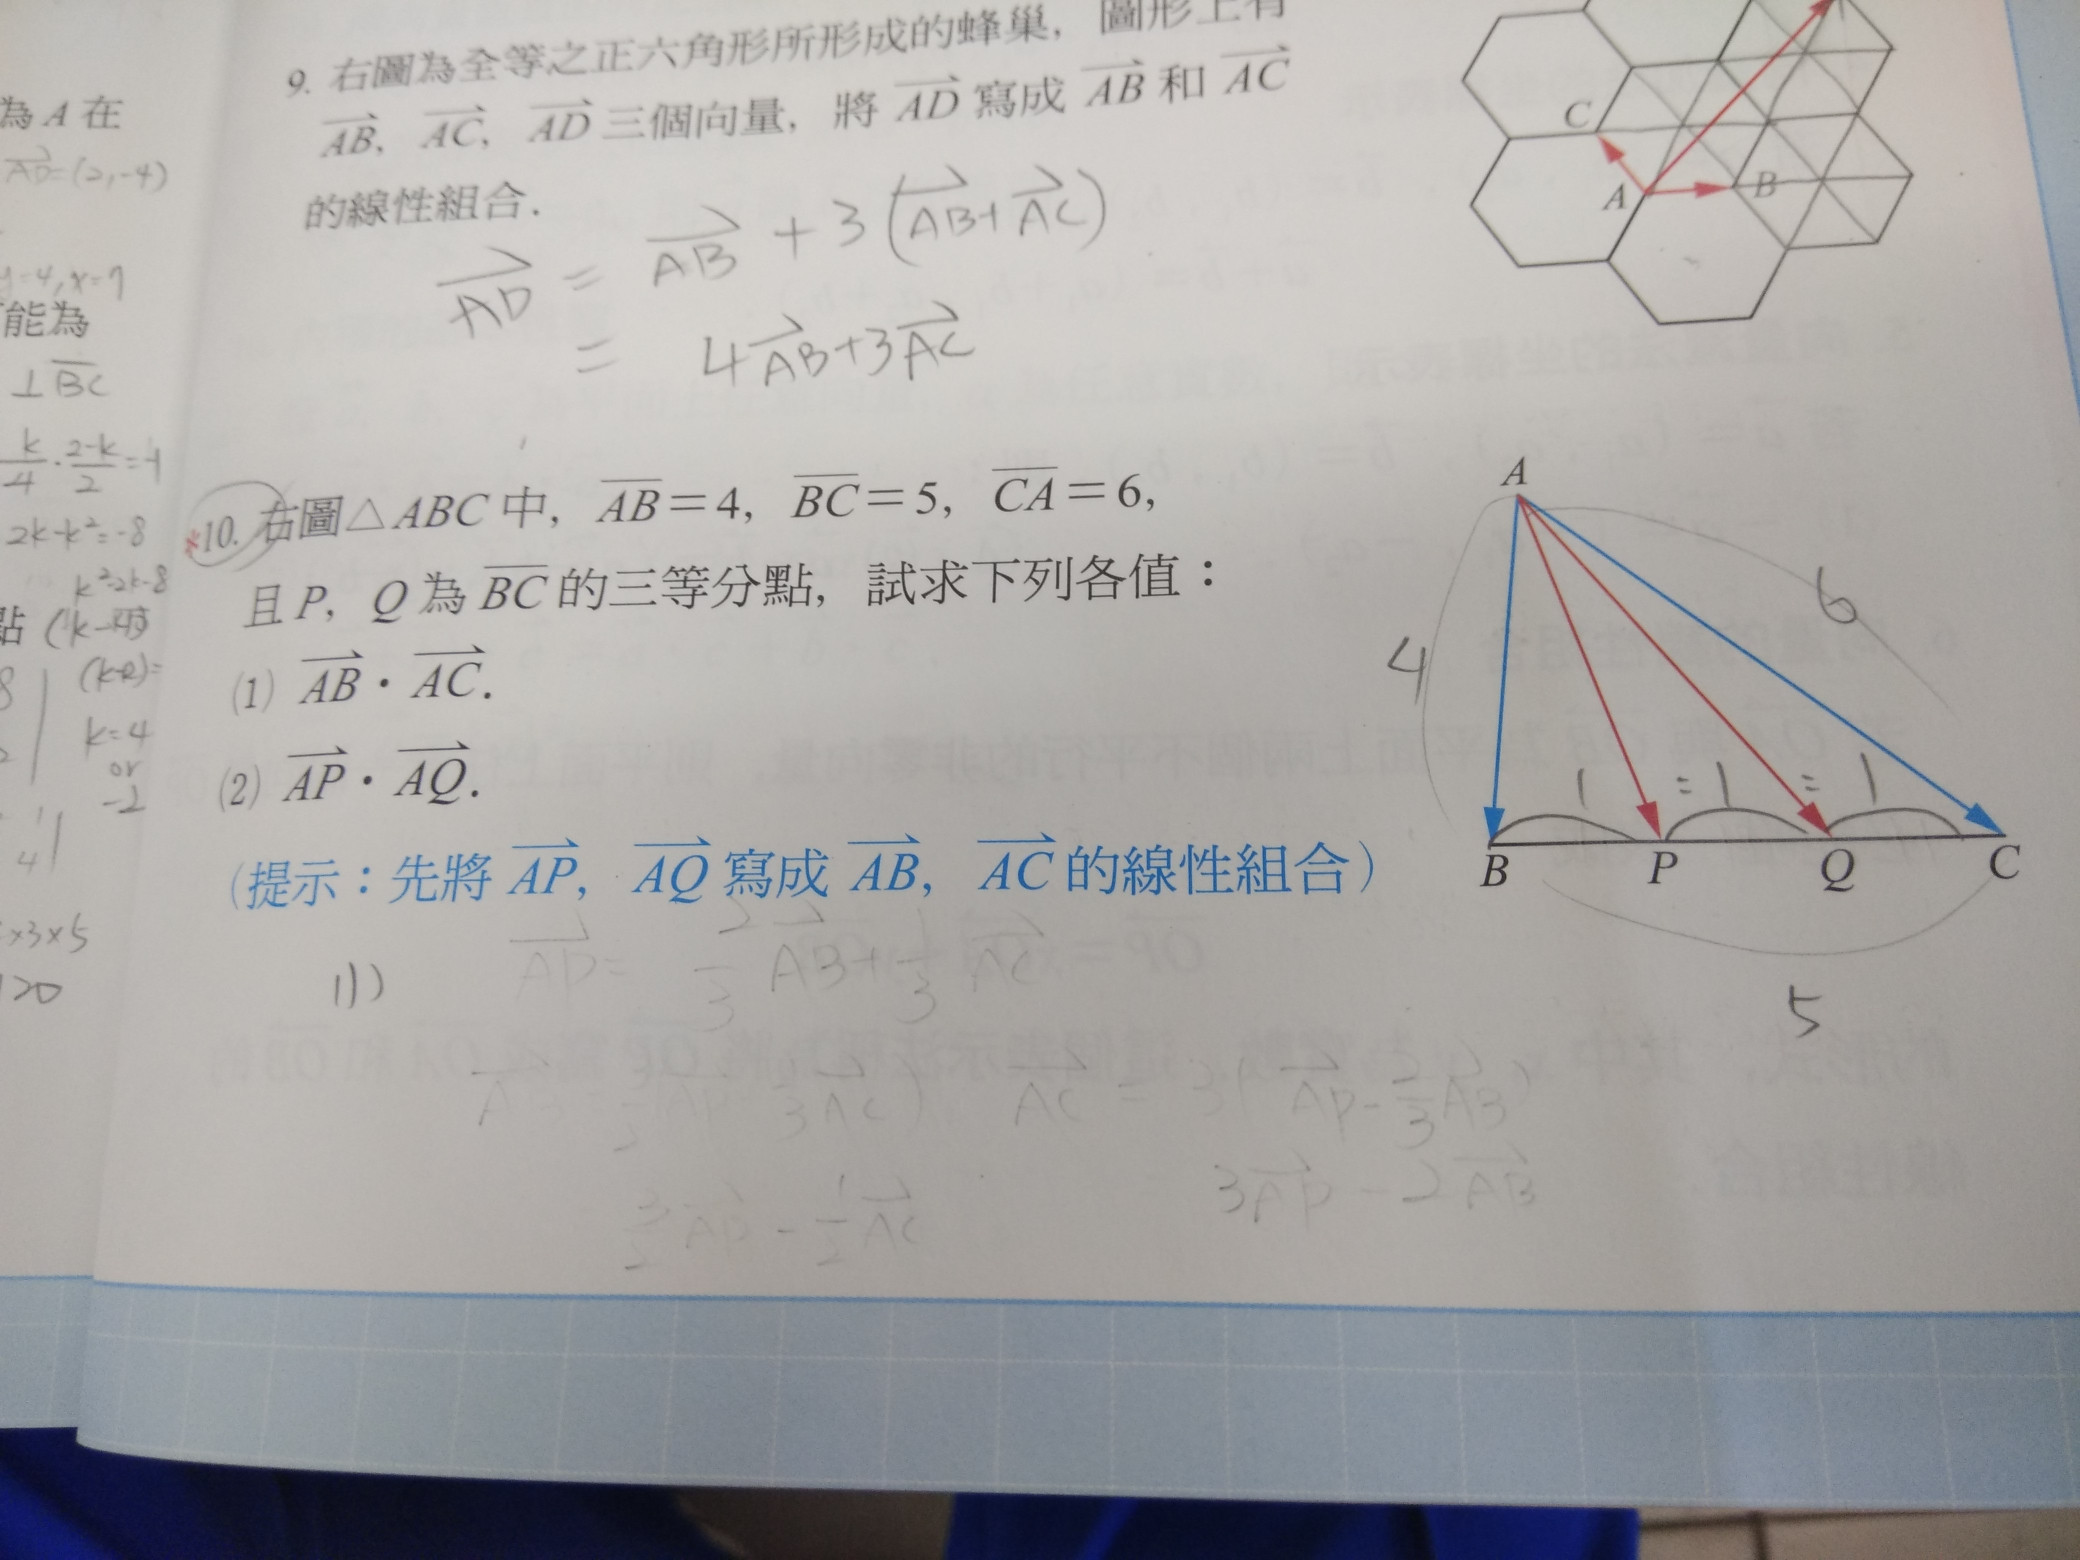 為 A 在
AD=(2,-4)
y=4, x=7
能為
⊥BC
k/4 · 2-k/2 = -1
2k-k²=-8
k²-2k-8
點
k=4
or
-2
4
×3×5
120
9. 右圖為全等之正六角形所形成的蜂巢，圖形上有
AB，AC，AD 三個向量，將 AD 寫成 AB 和 AC
的線性組合.
AD = AB + 3(AB+AC)
= 4AB+3AC
C
A
B
*10. 右圖△ABC 中，AB=4，BC=5，CA=6，
且 P，Q 為 BC 的三等分點，試求下列各值：
(1) AB · AC.
(2) AP · AQ.
(提示：先將 AP，AQ 寫成 AB，AC 的線性組合)
A
4
6
1 = 1 = 1
B P Q C
5
(1)
AP = 2/3 AB + 1/3 AC
AC = 3(AP - 2/3 AB)
3AP - 2AB
3/2 AP - 1/2 AC